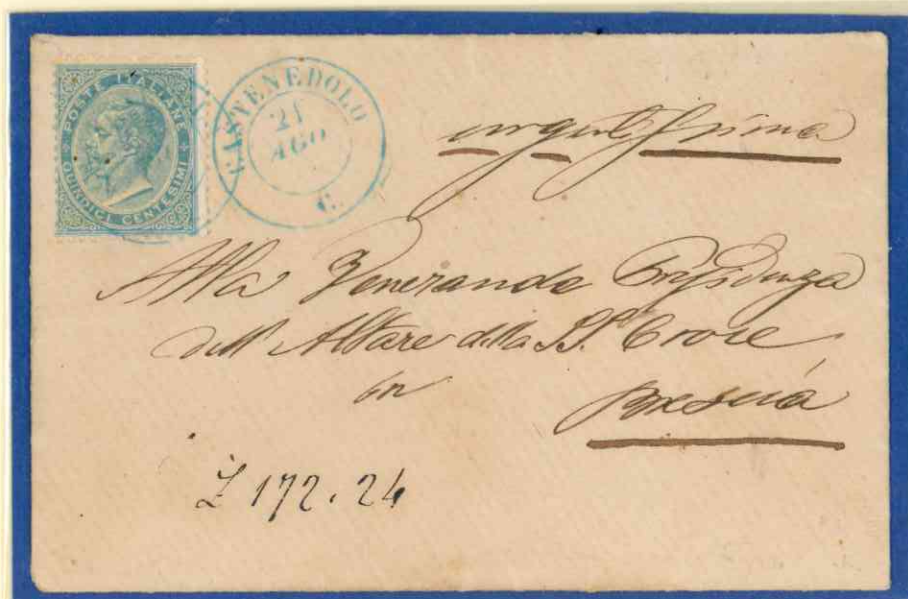 POSTE ITALIANE
QUINDICI CENTESIMI
CASTENEDOLO
21
AGO
C.
urgentissima
Alla Veneranda Presidenza
dell'Altare della SS. Croce
in
Brescia
£ 172.24